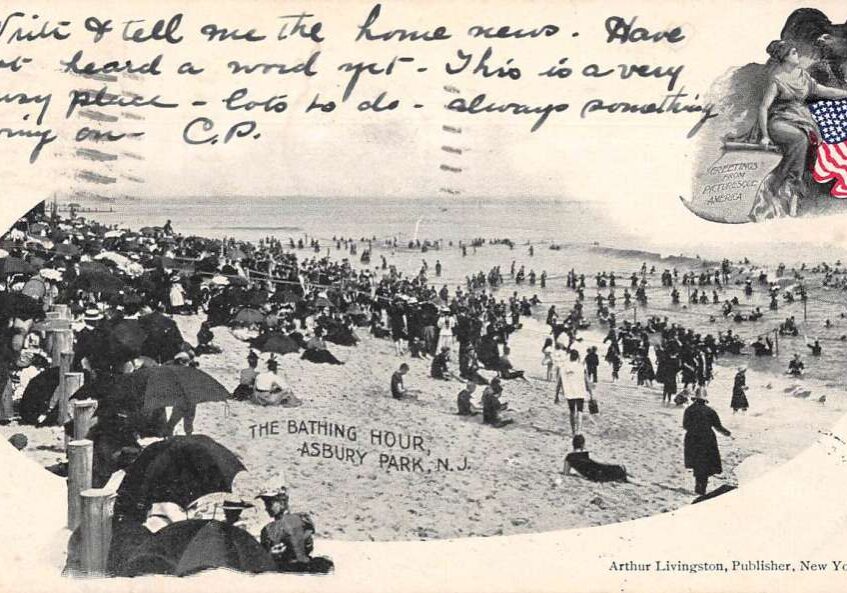 Write & tell me the home news. Have
heard a word yet - This is a very
place - lots to do - always something
on - C.P.
"GREETINGS"
FROM
PICTURESQUE
AMERICA
THE BATHING HOUR,
ASBURY PARK, N.J.
Arthur Livingston, Publisher, New Yo